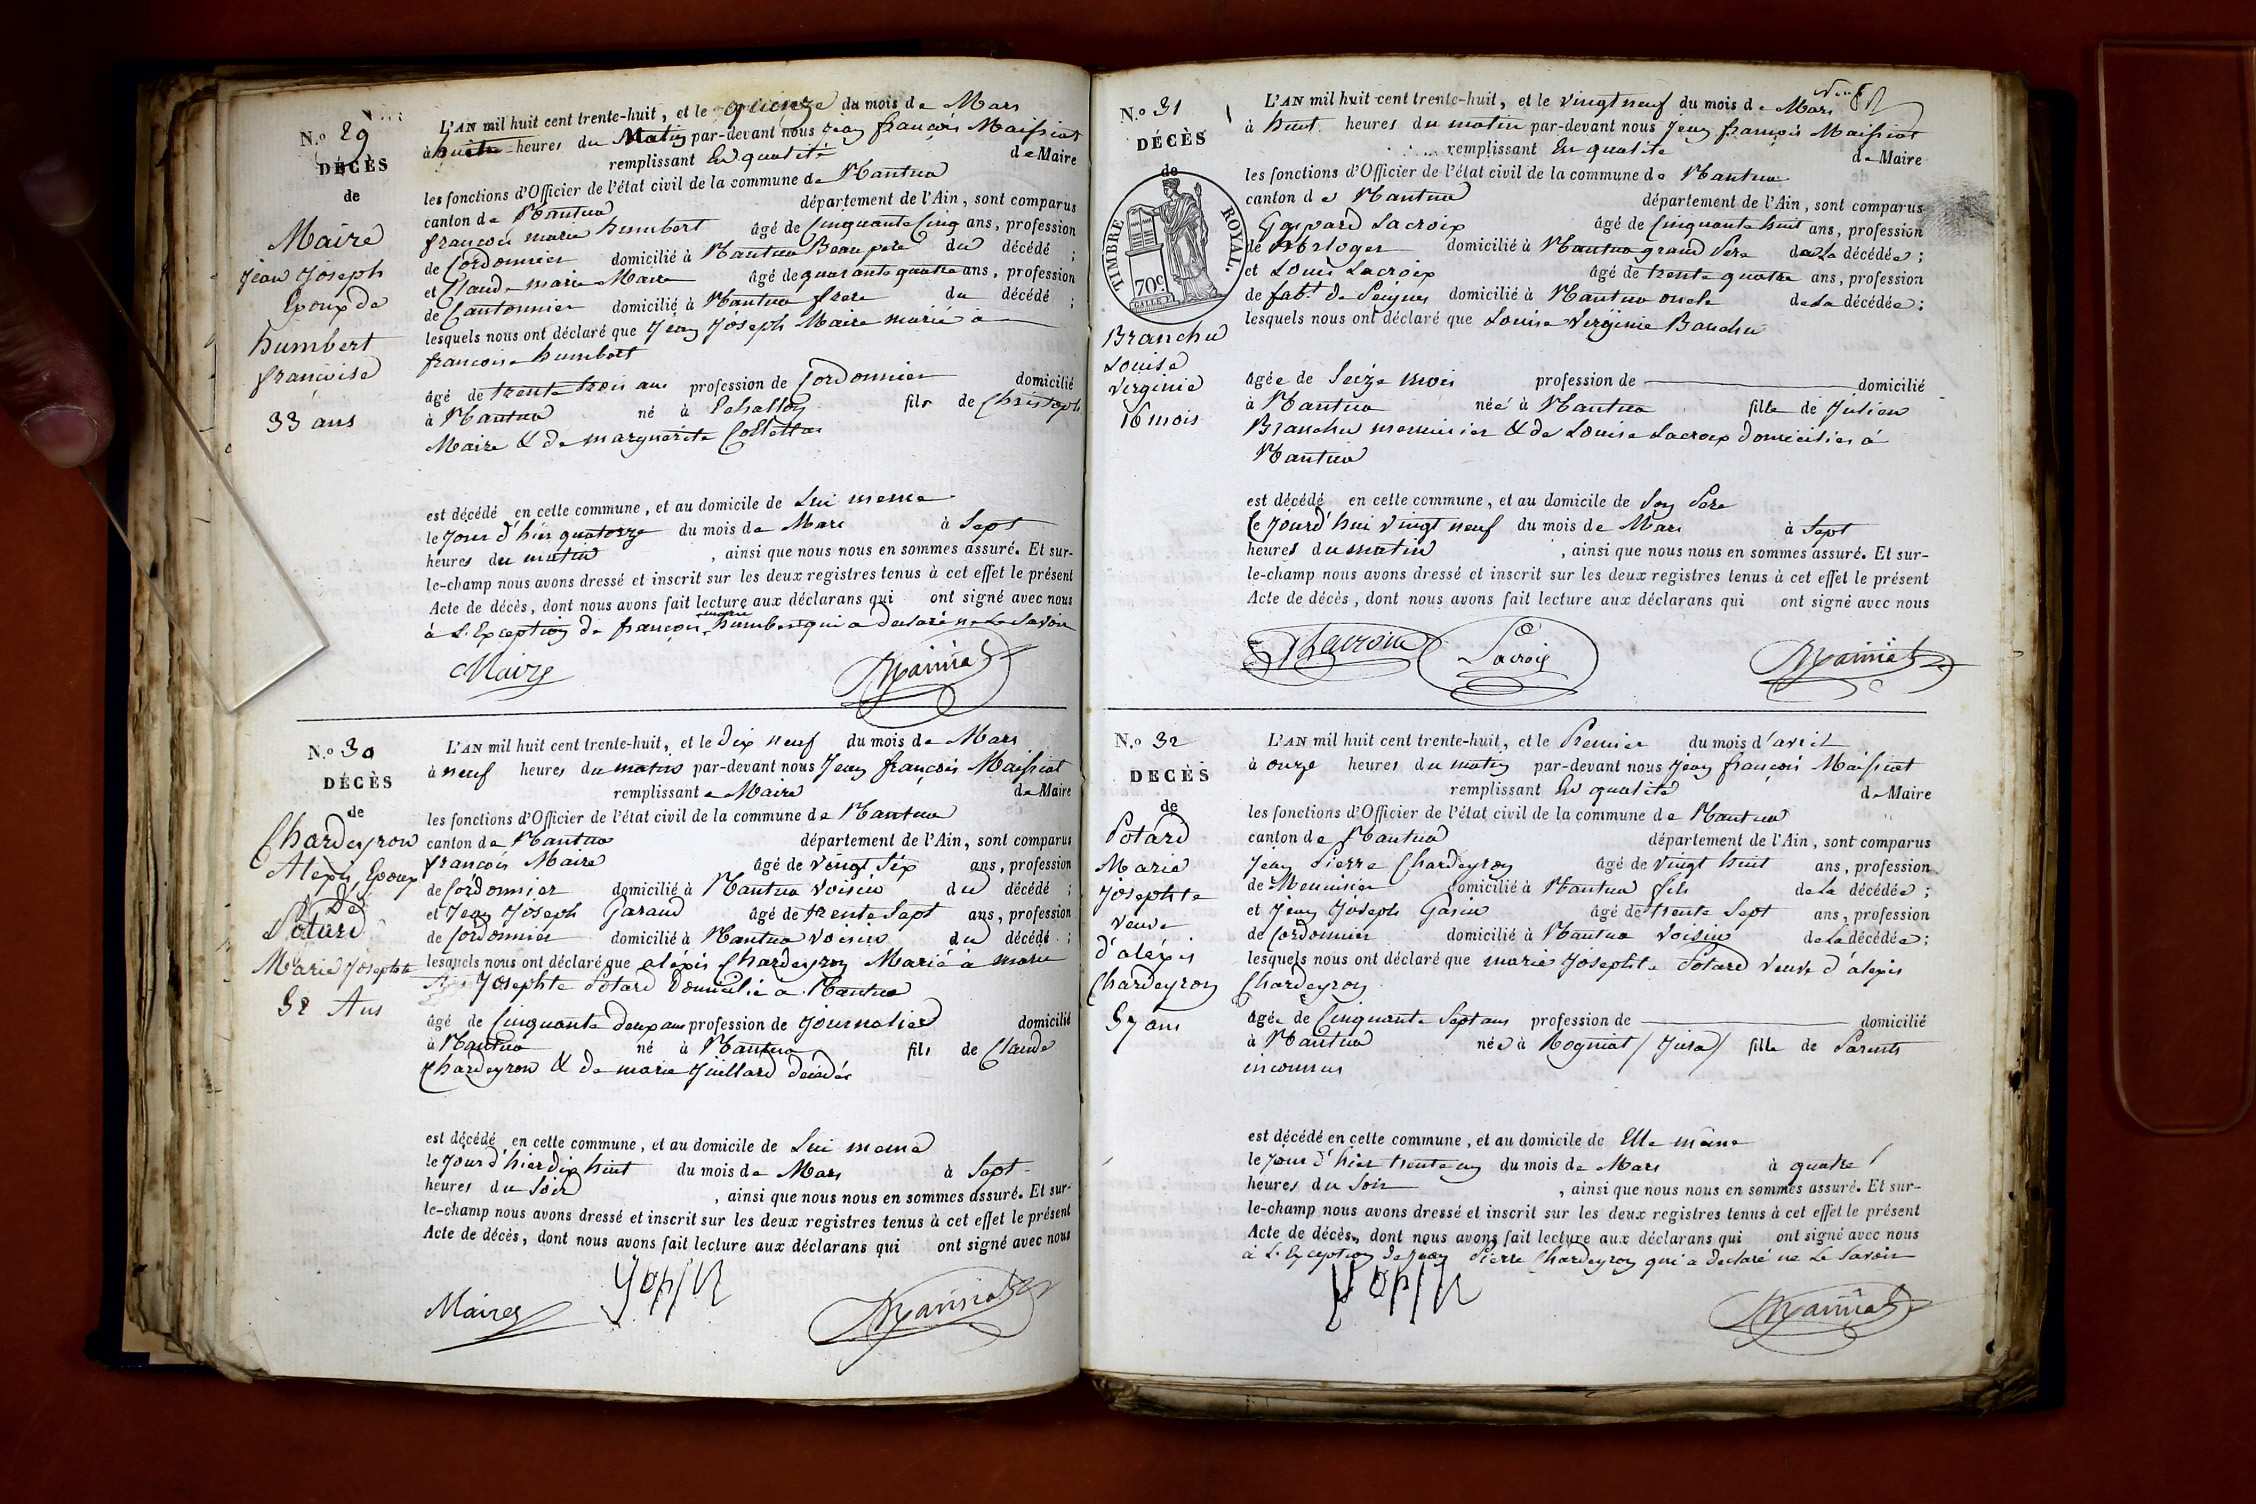 N.o 29
DÉCÈS
de
Maire
Jean Joseph
Epoux de
humbert
françoise
33 ans
L'AN mil huit cent trente-huit, et le quinze du mois de Mars
à huit heures du Matin par-devant nous jean françois Maissiat
remplissant En qualité de Maire
les fonctions d'Officier de l'état civil de la commune de Nantua
canton de Nantua département de l'Ain, sont comparus
françois marie humbert âgé de Cinquante Cinq ans, profession
de Cordonnier domicilié à Nantua Beau pere du décédé ;
et Claude marie Maire âgé de quarante quatre ans, profession
de Cantonnier domicilié à Nantua frere du décédé ;
lesquels nous ont déclaré que Jean Joseph Maire marié à
francoise humbert
âgé de trente trois ans profession de Cordonnier domicilié
à Nantua né à Echallon fils de Christophe
Maire & de marguerite Collettaz
est décédé en cette commune, et au domicile de Lui meme
le Jour d'hier quatorze du mois de Mars à Sept
heures du matin , ainsi que nous nous en sommes assuré. Et sur-
le-champ nous avons dressé et inscrit sur les deux registres tenus à cet effet le présent
Acte de décès, dont nous avons fait lecture aux déclarans qui ont signé avec nous
marie
à L'Exception de françois humbert qui a declaré ne Le Savoir
Maire Maissiat
N.o 30
DÉCÈS
de
Chardeyron
Alexis Epoux
De
Potard
Marie Josephte
52 Ans
L'AN mil huit cent trente-huit, et le Dix neuf du mois de Mars
à neuf heures du matin par-devant nous Jean françois Maissiat
remplissant e Maire de Maire
les fonctions d'Officier de l'état civil de la commune de Nantua
canton de Nantua département de l'Ain, sont comparus
françois Maire âgé de vingt Six ans, profession
de Cordonnier domicilié à Nantua voisin du décédé ;
et Jean Joseph Garaud âgé de trente Sept ans, profession
de Cordonnier domicilié à Nantua voisin du décédé ;
lesquels nous ont déclaré que alexis Chardeyron Marié a marie
Josephte Potard Domicilié a Nantua
âgé de Cinquante deux ans profession de Journalier domicilié
à Nantua né à Nantua fils de Claude
Chardeyron & de marie Juillard décédés
est décédé en cette commune, et au domicile de Lui meme
le Jour d'hier dix huit du mois de Mars à Sept
heures du Soir , ainsi que nous nous en sommes assuré. Et sur-
le-champ nous avons dressé et inscrit sur les deux registres tenus à cet effet le présent
Acte de décès, dont nous avons fait lecture aux déclarans qui ont signé avec nous
Maire Maissiat
N.o 31
DÉCÈS
de
TIMBRE ROYAL.
70c.
Branchu
Louise
Verginie
16 mois
L'AN mil huit cent trente-huit, et le vingt neuf du mois de Mars
à huit heures du matin par-devant nous Jean françois Maissiat
remplissant En qualité de Maire
les fonctions d'Officier de l'état civil de la commune de Nantua
canton de Nantua département de l'Ain, sont comparus
Gaspard Lacroix âgé de Cinquante huit ans, profession
de Horloger domicilié à Nantua grand Pere de La décédée ;
et Louis Lacroix âgé de trente quatre ans, profession
de fabt. de Peignes domicilié à Nantua oncle de La décédée ;
lesquels nous ont déclaré que Louise Verginie Banchu
âgée de Seize mois profession de domicilié
à Nantua née à Nantua fille de Julien
Branchu menuisier & de Louise Lacroix domiciliés à
Nantua
est décédé en cette commune, et au domicile de Son Pere
le Jourd'hui vingt neuf du mois de Mars à Sept
heures du matin , ainsi que nous nous en sommes assuré. Et sur-
le-champ nous avons dressé et inscrit sur les deux registres tenus à cet effet le présent
Acte de décès, dont nous avons fait lecture aux déclarans qui ont signé avec nous
Lacroix Lacroix Maissiat
N.o 32
DÉCÈS
de
Potard
Marie
Josephte
veuve
d'alexis
Chardeyron
57 ans
L'AN mil huit cent trente-huit, et le Premier du mois d'avril
à onze heures du matin par-devant nous Jean françois Maissiat
remplissant En qualité de Maire
les fonctions d'Officier de l'état civil de la commune de Nantua
canton de Nantua département de l'Ain, sont comparus
Jean Pierre Chardeyron âgé de vingt huit ans, profession
de Menuisier domicilié à Nantua fils de La décédée ;
et Jean Joseph Garin âgé de trente Sept ans, profession
de Cordonnier domicilié à Nantua Voisin de La décédée ;
lesquels nous ont déclaré que marie Josephte Potard veuve d'alexis
Chardeyron
âgée de Cinquante Sept ans profession de domicilié
à Nantua née à Rogniat (Jura) fille de Parents
inconnus
est décédé en cette commune, et au domicile de Elle même
le Jour d'hier trente un du mois de Mars à quatre
heures du Soir , ainsi que nous nous en sommes assuré. Et sur-
le-champ nous avons dressé et inscrit sur les deux registres tenus à cet effet le présent
Acte de décès, dont nous avons fait lecture aux déclarans qui ont signé avec nous
à L'Exception de Jean Pierre Chardeyron qui a declaré ne Le Savoir
Maissiat